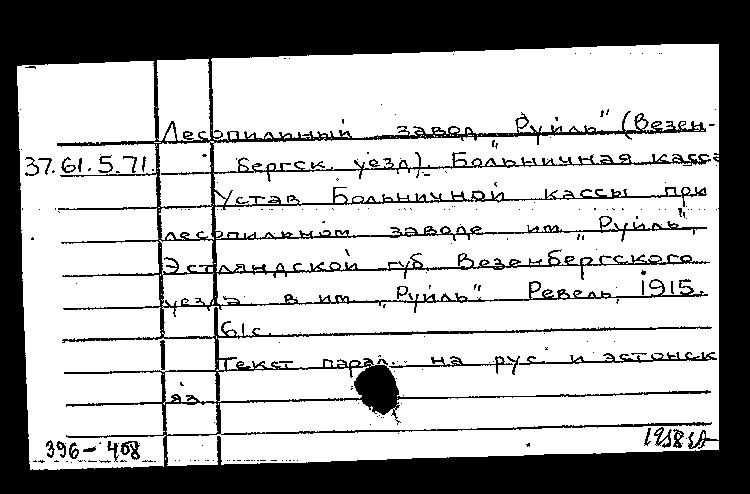 Лесопильный завод "Руиль" (Везен-
37.61.5.71. бергск. уезд). Больничная касса
Устав Больничной кассы при
лесопильном заводе им. "Руиль",
Эстляндской губ. Везенбергского
уезда в им. "Руиль". Ревель, 1915.
61с.
Текст парал. на рус. и эстонск
яз.
396-408